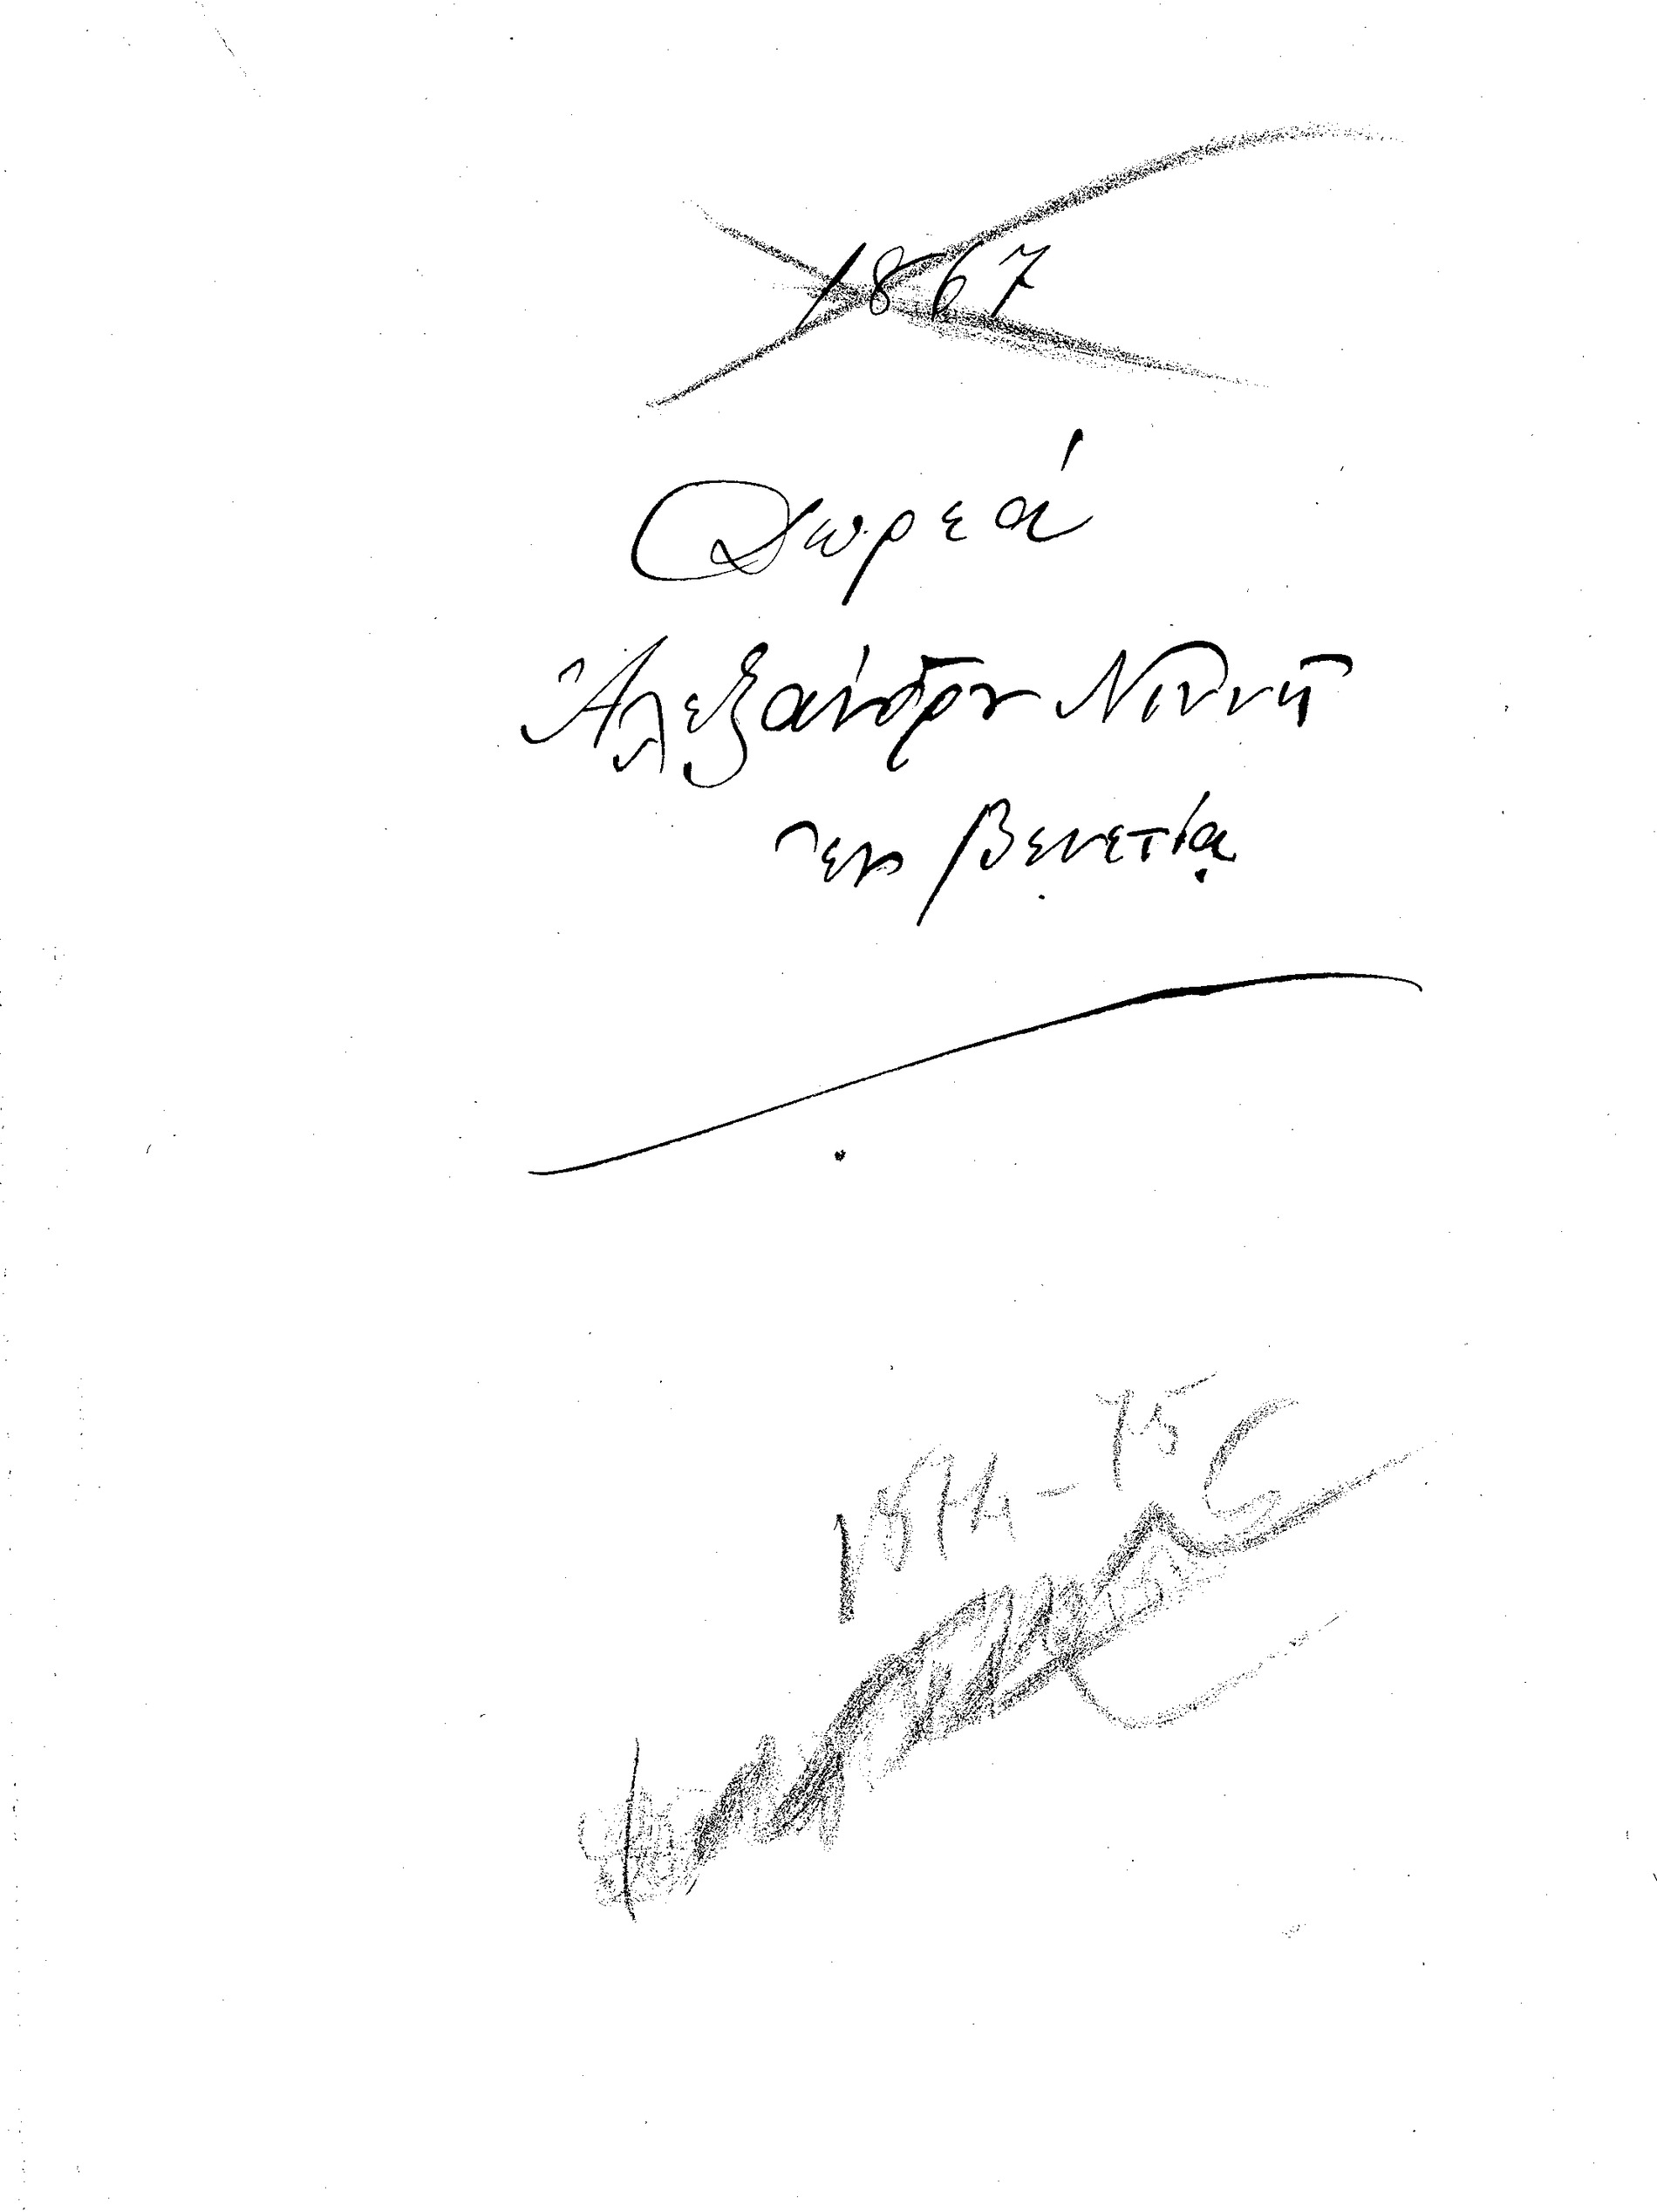 1867
Δωρεά
Ἀλεξάνδρου Νιννῆ
ἐν Βενετίᾳ
1874-75